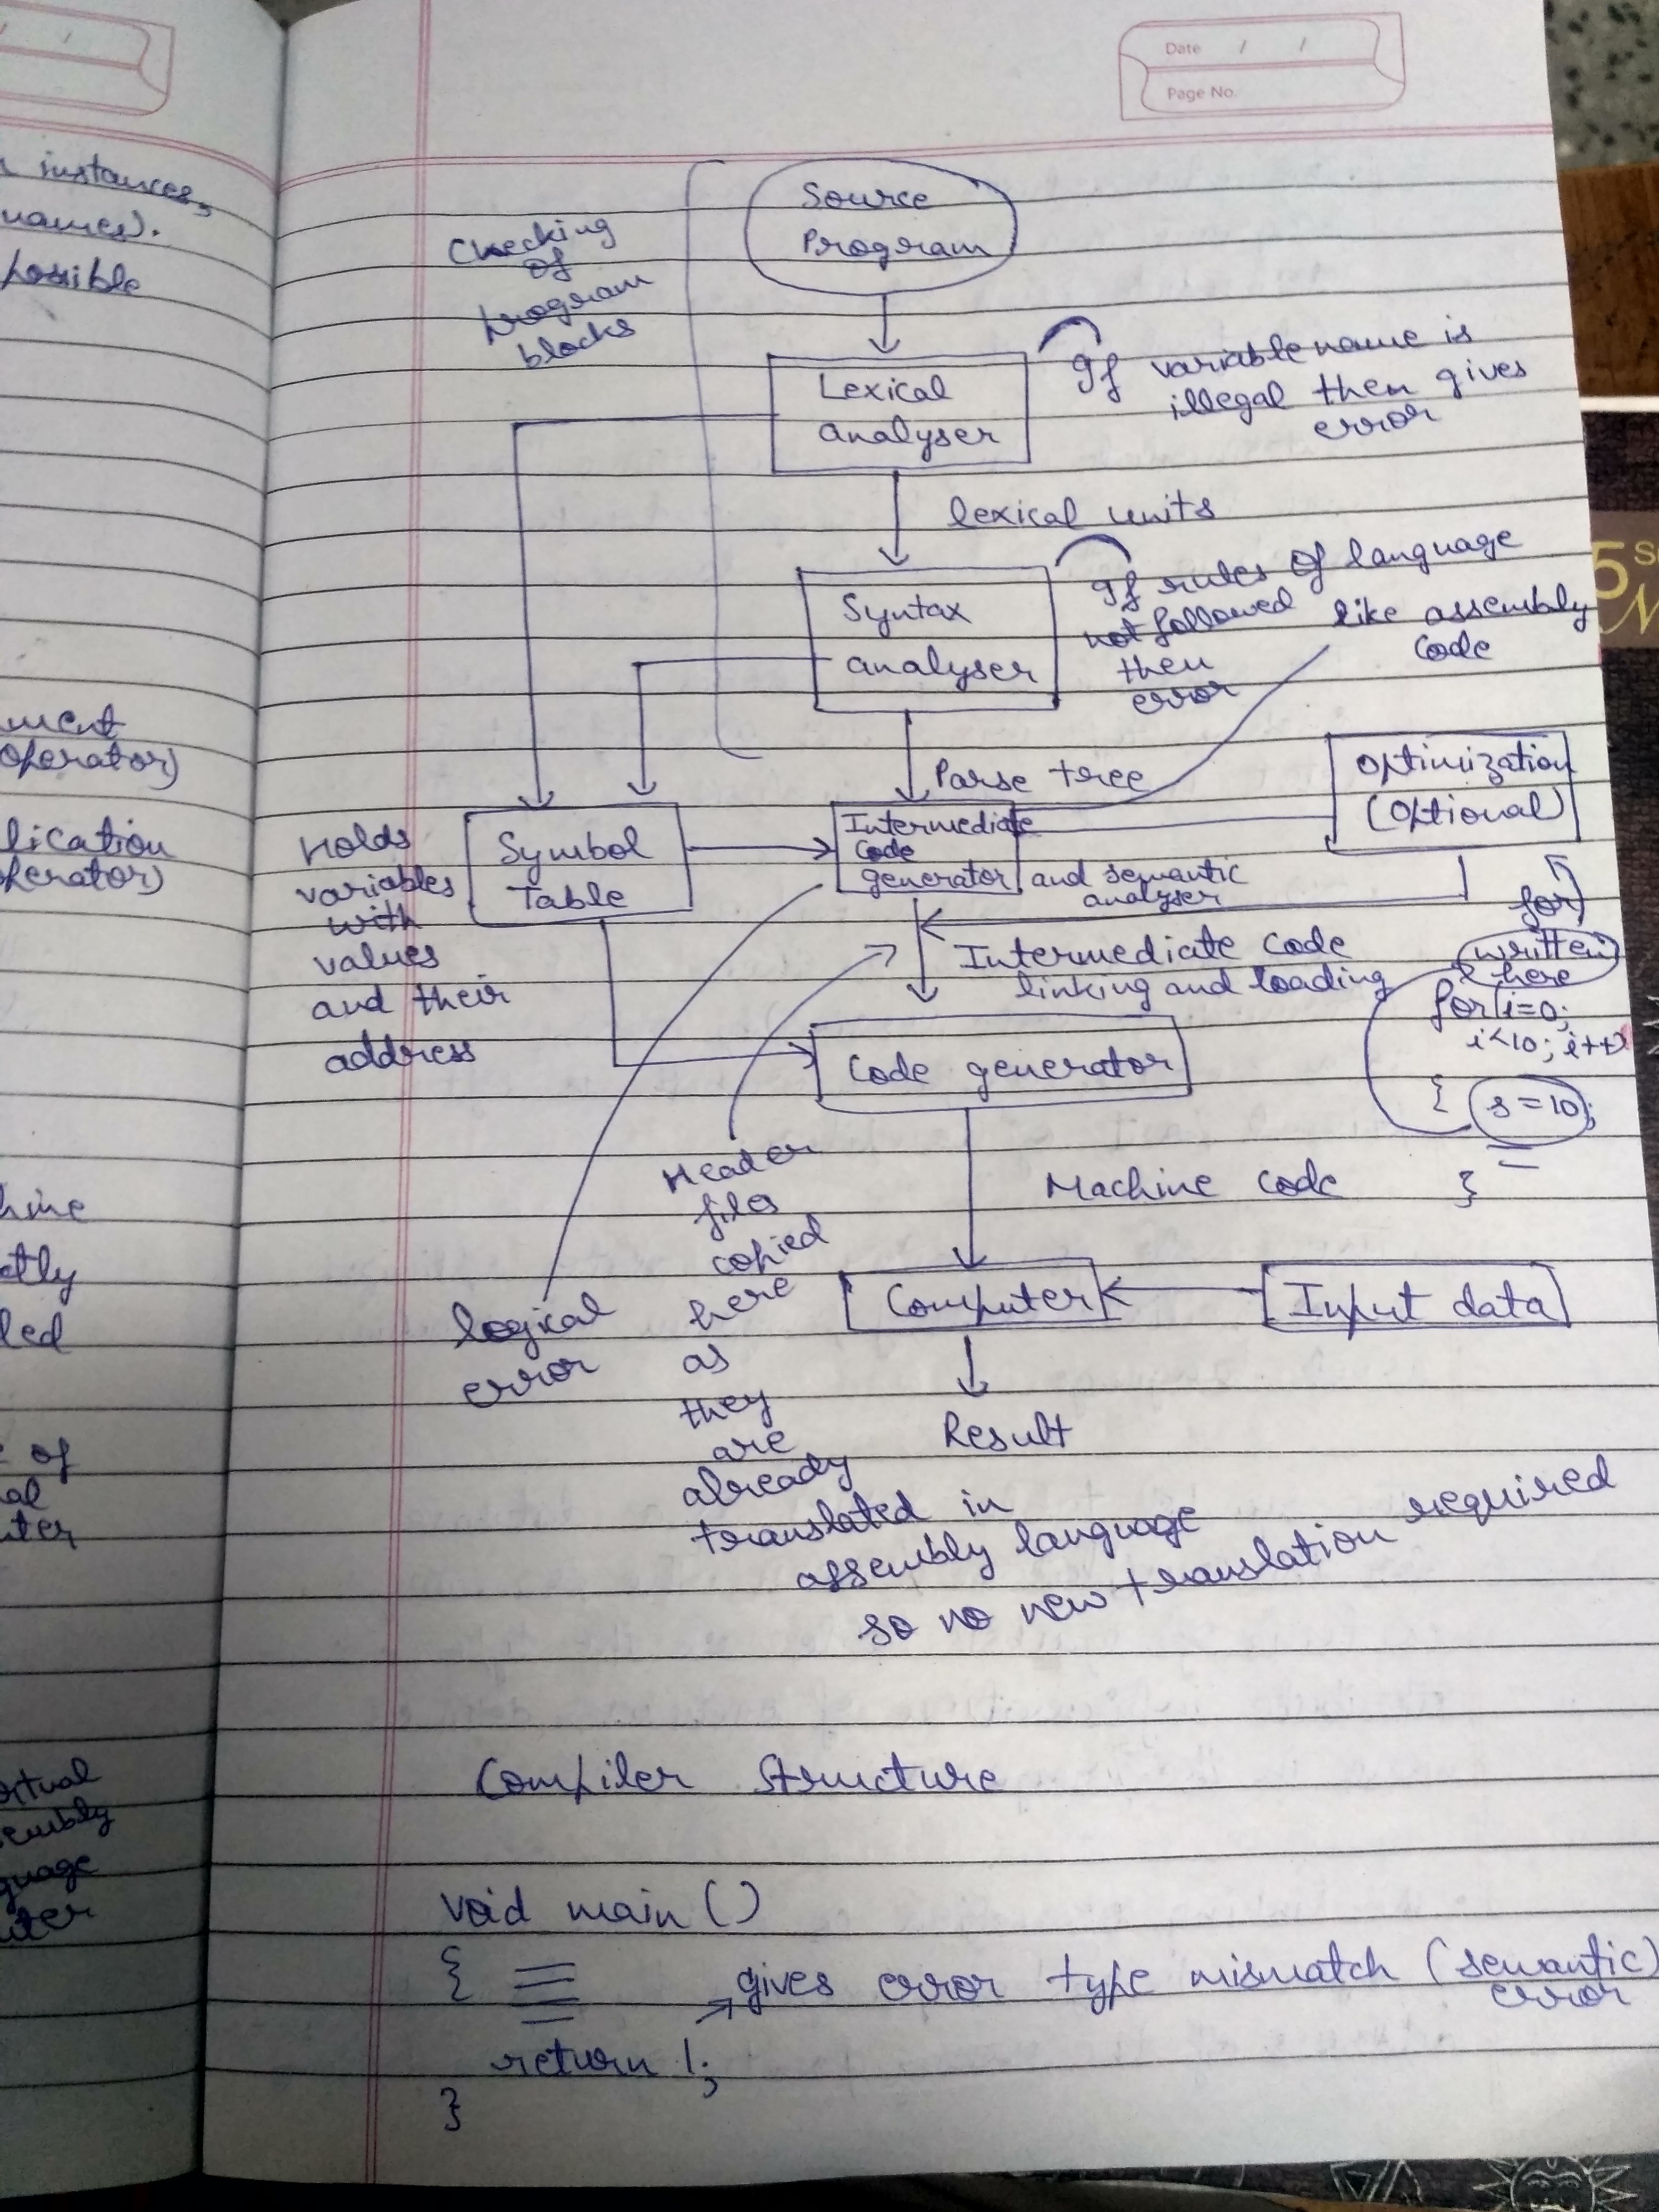 Date / /
Page No.
instances,
names).
possible
ment
operator)
lication
perator)
hine
ctly
led
of
al
uter
rtual
sembly
guage
uter
Source
Program
Checking
of
program
blocks
Lexical
analyser
If variable name is
illegal then gives
error
lexical units
Syntax
analyser
If rules of language
not followed
then
error
like assembly
code
Parse tree
Optimization
(Optional)
Holds
variables
with
values
and their
address
Symbol
Table
Intermediate
Code
generator and semantic
analyser
Intermediate code
linking and loading
for
written
here
for(i=0;
i<10; i++)
{ s=10;
}
Code generator
Machine code
Header
files
copied
here
as
they
are
already
translated in
assembly language
so no new translation required
logical
error
Computer
Input data
Result
Compiler Structure
void main ()
{
gives error type mismatch (semantic)
error
return 1;
}
5